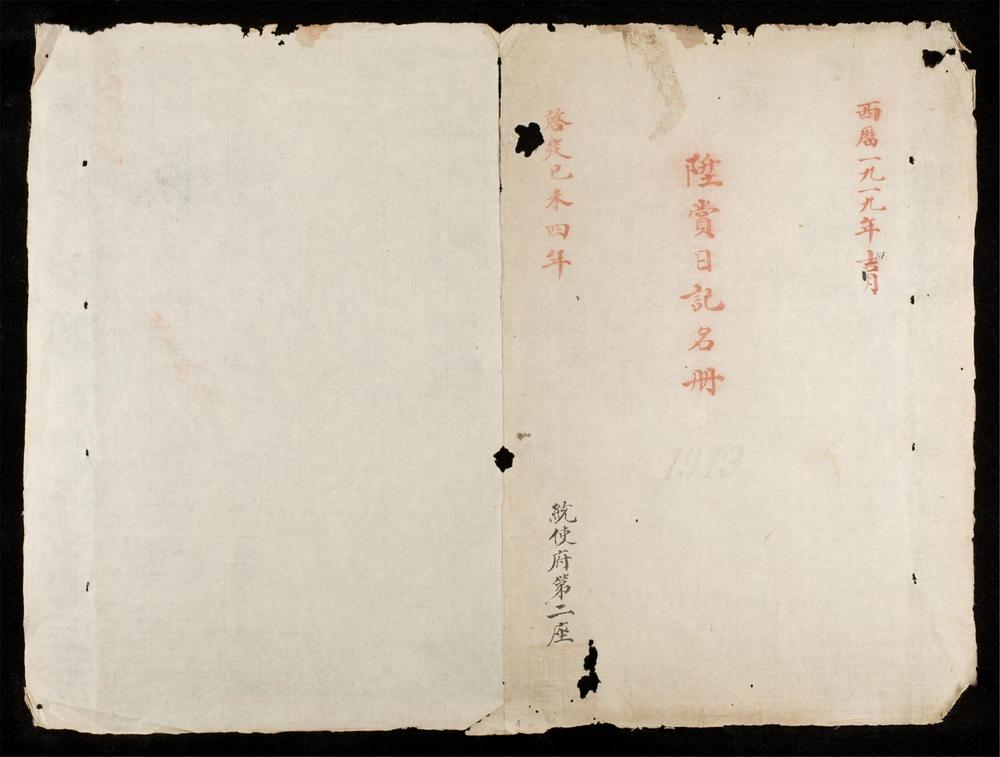 西曆一九一九年吉月
陞賞日記名冊
啓定己未四年
統使府第二座
1919